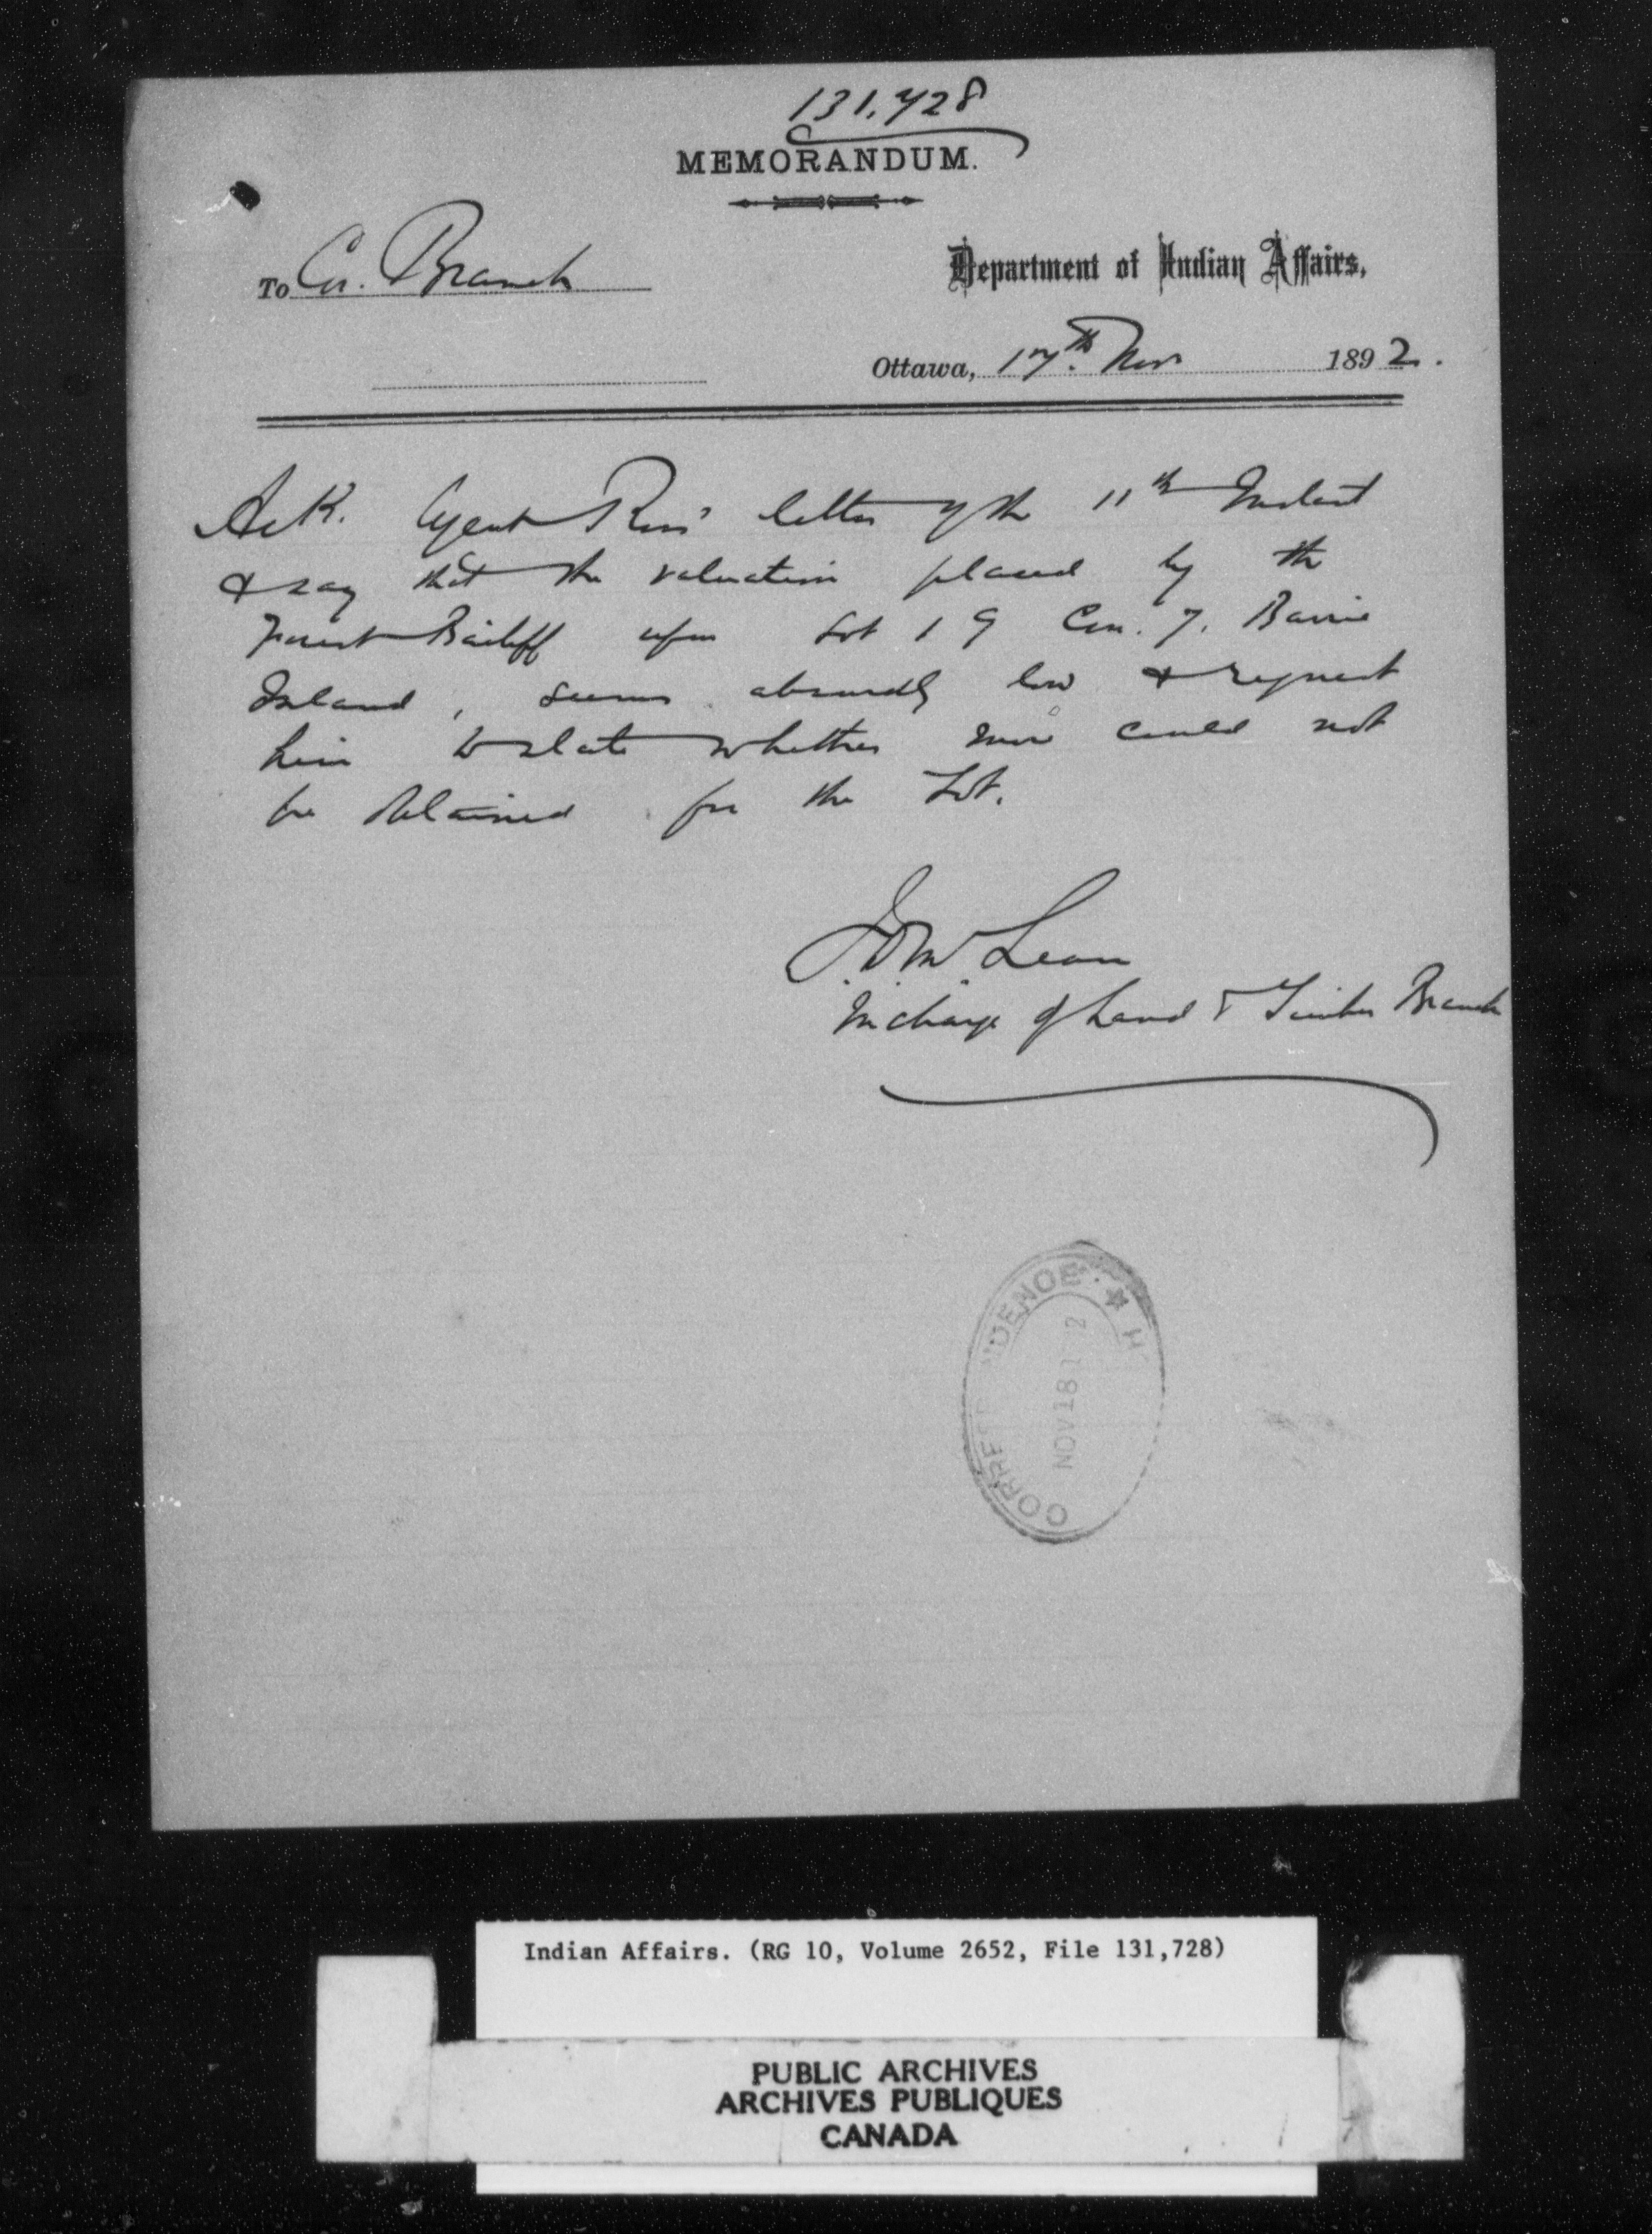 131,728
MEMORANDUM.
To Cor. Branch
Department of Indian Affairs,
Ottawa, 17th. Nov 1892.
Ack. Agent Ross' letter of the 11th Instant
& say that the valuation placed by the
Forest Bailiff upon Lot 19 Con. 7. Barrie
Island, seems absurdly low & request
him to state whether more could not
be obtained for the Lot.
J.D. McLean
In charge of Land & Timber Branch
CORRE DENCE ★ H
NOV 18 1 2
Indian Affairs. (RG 10, Volume 2652, File 131,728)
PUBLIC ARCHIVES
ARCHIVES PUBLIQUES
CANADA